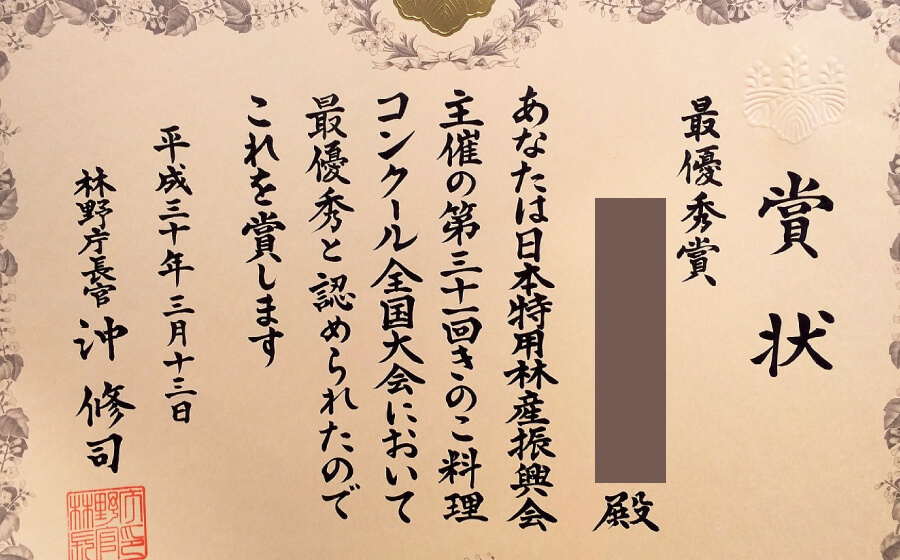 賞状
最優秀賞
殿
あなたは日本特用林産振興会
主催の第三十一回きのこ料理
コンクール全国大会において
最優秀と認められたので
これを賞します
平成三十年三月十三日
林野庁長官 沖 修司